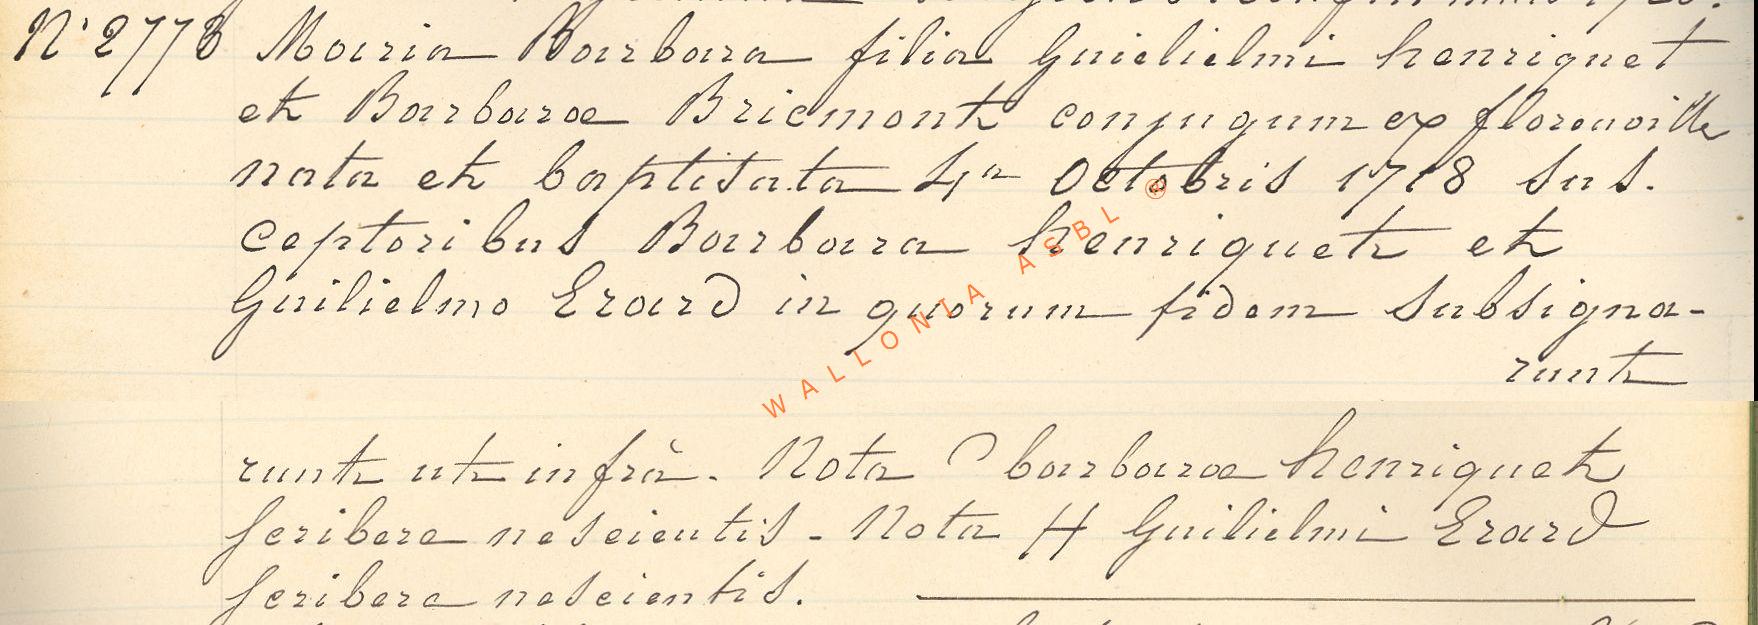 N° 2773 Maria Barbara filia Guielielmi henriquet
et Barbarae Bricmont conjugum ex florenville
nata et baptisata 4a Octobris 1718 sus.
ceptoribus Barbara henriquet et
Guilielmo Erard in quorum fidem subsigna-
runt
runt ut infrà. Nota barbarae henriquet
scribere nescientis - Nota H Guilielmi Erard
scribere nescientis.
WALLONIA ASBL ®